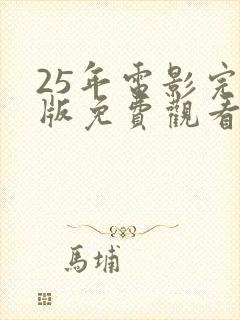 25年電影完
版免費觀看
馬埔